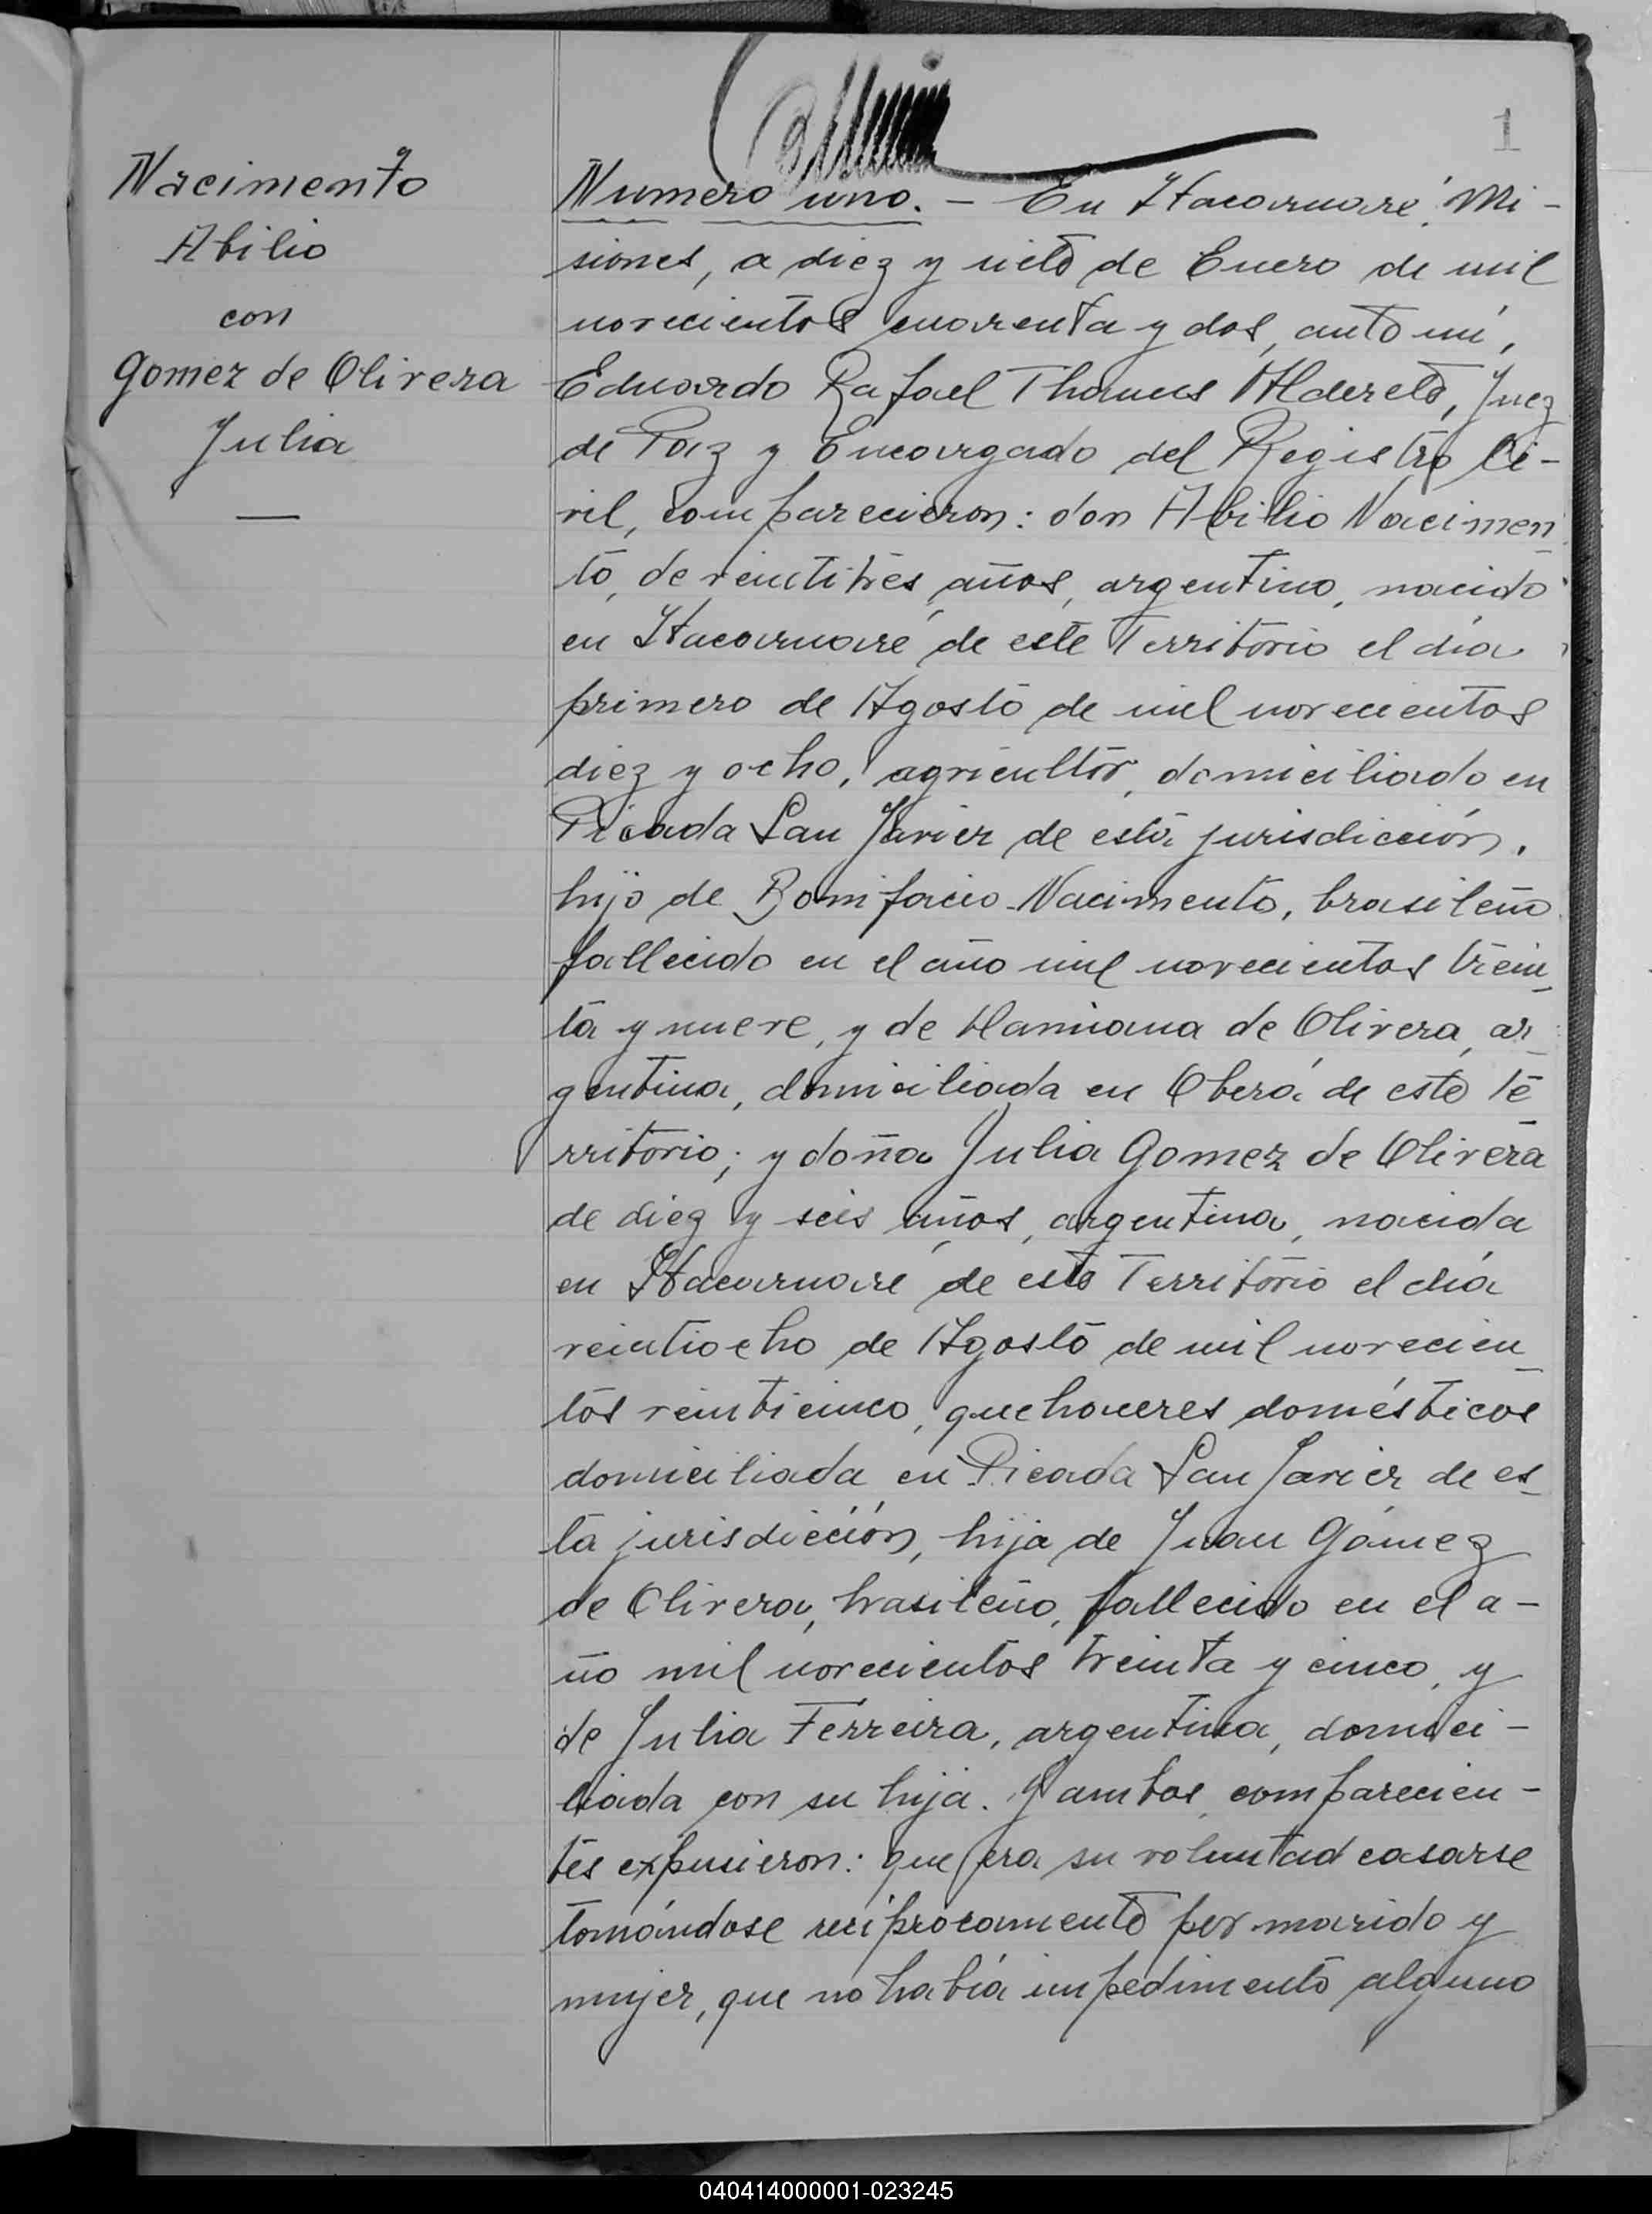 1
Nacimento
Abilio
con
Gomez de Olivera
Julia
Numero uno. - En Itacaruaré, Mi-
siones, a diez y siete de Enero de mil
novecientos cuarenta y dos, ante mí,
Eduardo Rafael Thames Alderete, Juez
de Paz y Encargado del Registro Ci-
vil, comparecieron: don Abilio Nacimen
to, de veintitrés años, argentino, nacido
en Itacaruaré de este Territorio el día
primero de Agosto de mil novecientos
diez y ocho, agricultor, domiciliado en
Picada San Javier de esta jurisdicción,
hijo de Bonifacio Nacimento, brasileño
fallecido en el año mil novecientos trein_
ta y nueve, y de Damiana de Olivera, ar_
gentina, domiciliada en Oberá de este te_
rritorio; y doña Julia Gomez de Olivera
de diez y seis años, argentina, nacida
en Itacaruaré de este Territorio el día
veintiocho de Agosto de mil novecien_
tos veinticinco, quehaceres domésticos
domiciliada en Picada San Javier de es_
ta jurisdicción, hija de Juan Gómez
de Olivera, brasileño, fallecido en el a-
ño mil novecientos treinta y cinco, y
de Julia Ferreira, argentina, domici-
liada con su hija. Y ambos comparecien-
tes expusieron: que era su voluntad casarse
tomándose recíprocamente por marido y
mujer, que no había impedimento alguno
040414000001-023245